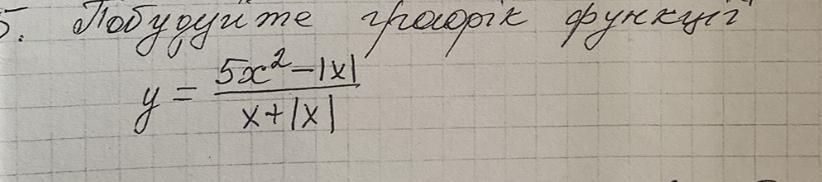 5. Побудуйте графік функції
y = \frac{5x^2 - |x|}{x + |x|}